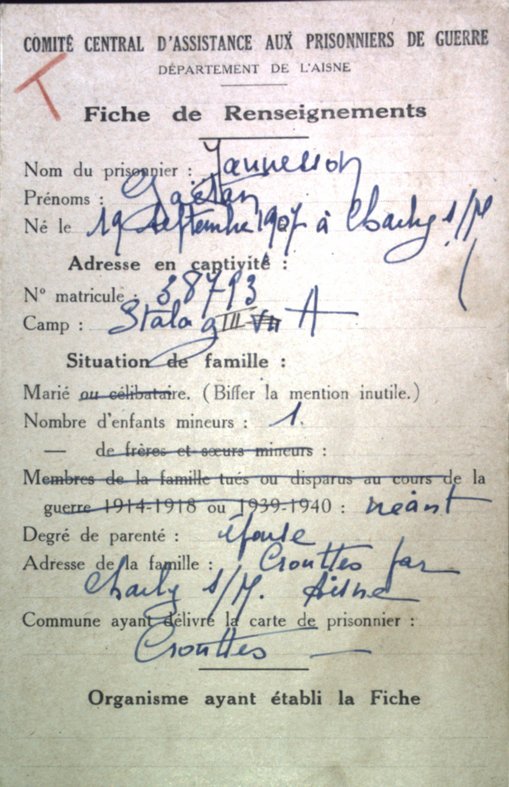 COMITÉ CENTRAL D'ASSISTANCE AUX PRISONNIERS DE GUERRE
DÉPARTEMENT DE L'AISNE
T
Fiche de Renseignements
Nom du prisonnier : Jannesson
Prénoms : Gaëtan
Né le 19 Septembre 1907 à Charly s/M
Adresse en captivité :
N° matricule : 38793
Camp : Stalag III VII A
Situation de famille :
Marié ou célibataire. (Biffer la mention inutile.)
Nombre d'enfants mineurs : 1.
— de frères et sœurs mineurs :
Membres de la famille tués ou disparus au cours de la
guerre 1914-1918 ou 1939-1940 : néant
Degré de parenté : épouse
Adresse de la famille : Crouttes par
Charly s/M. Aisne
Commune ayant délivré la carte de prisonnier :
Crouttes —
Organisme ayant établi la Fiche